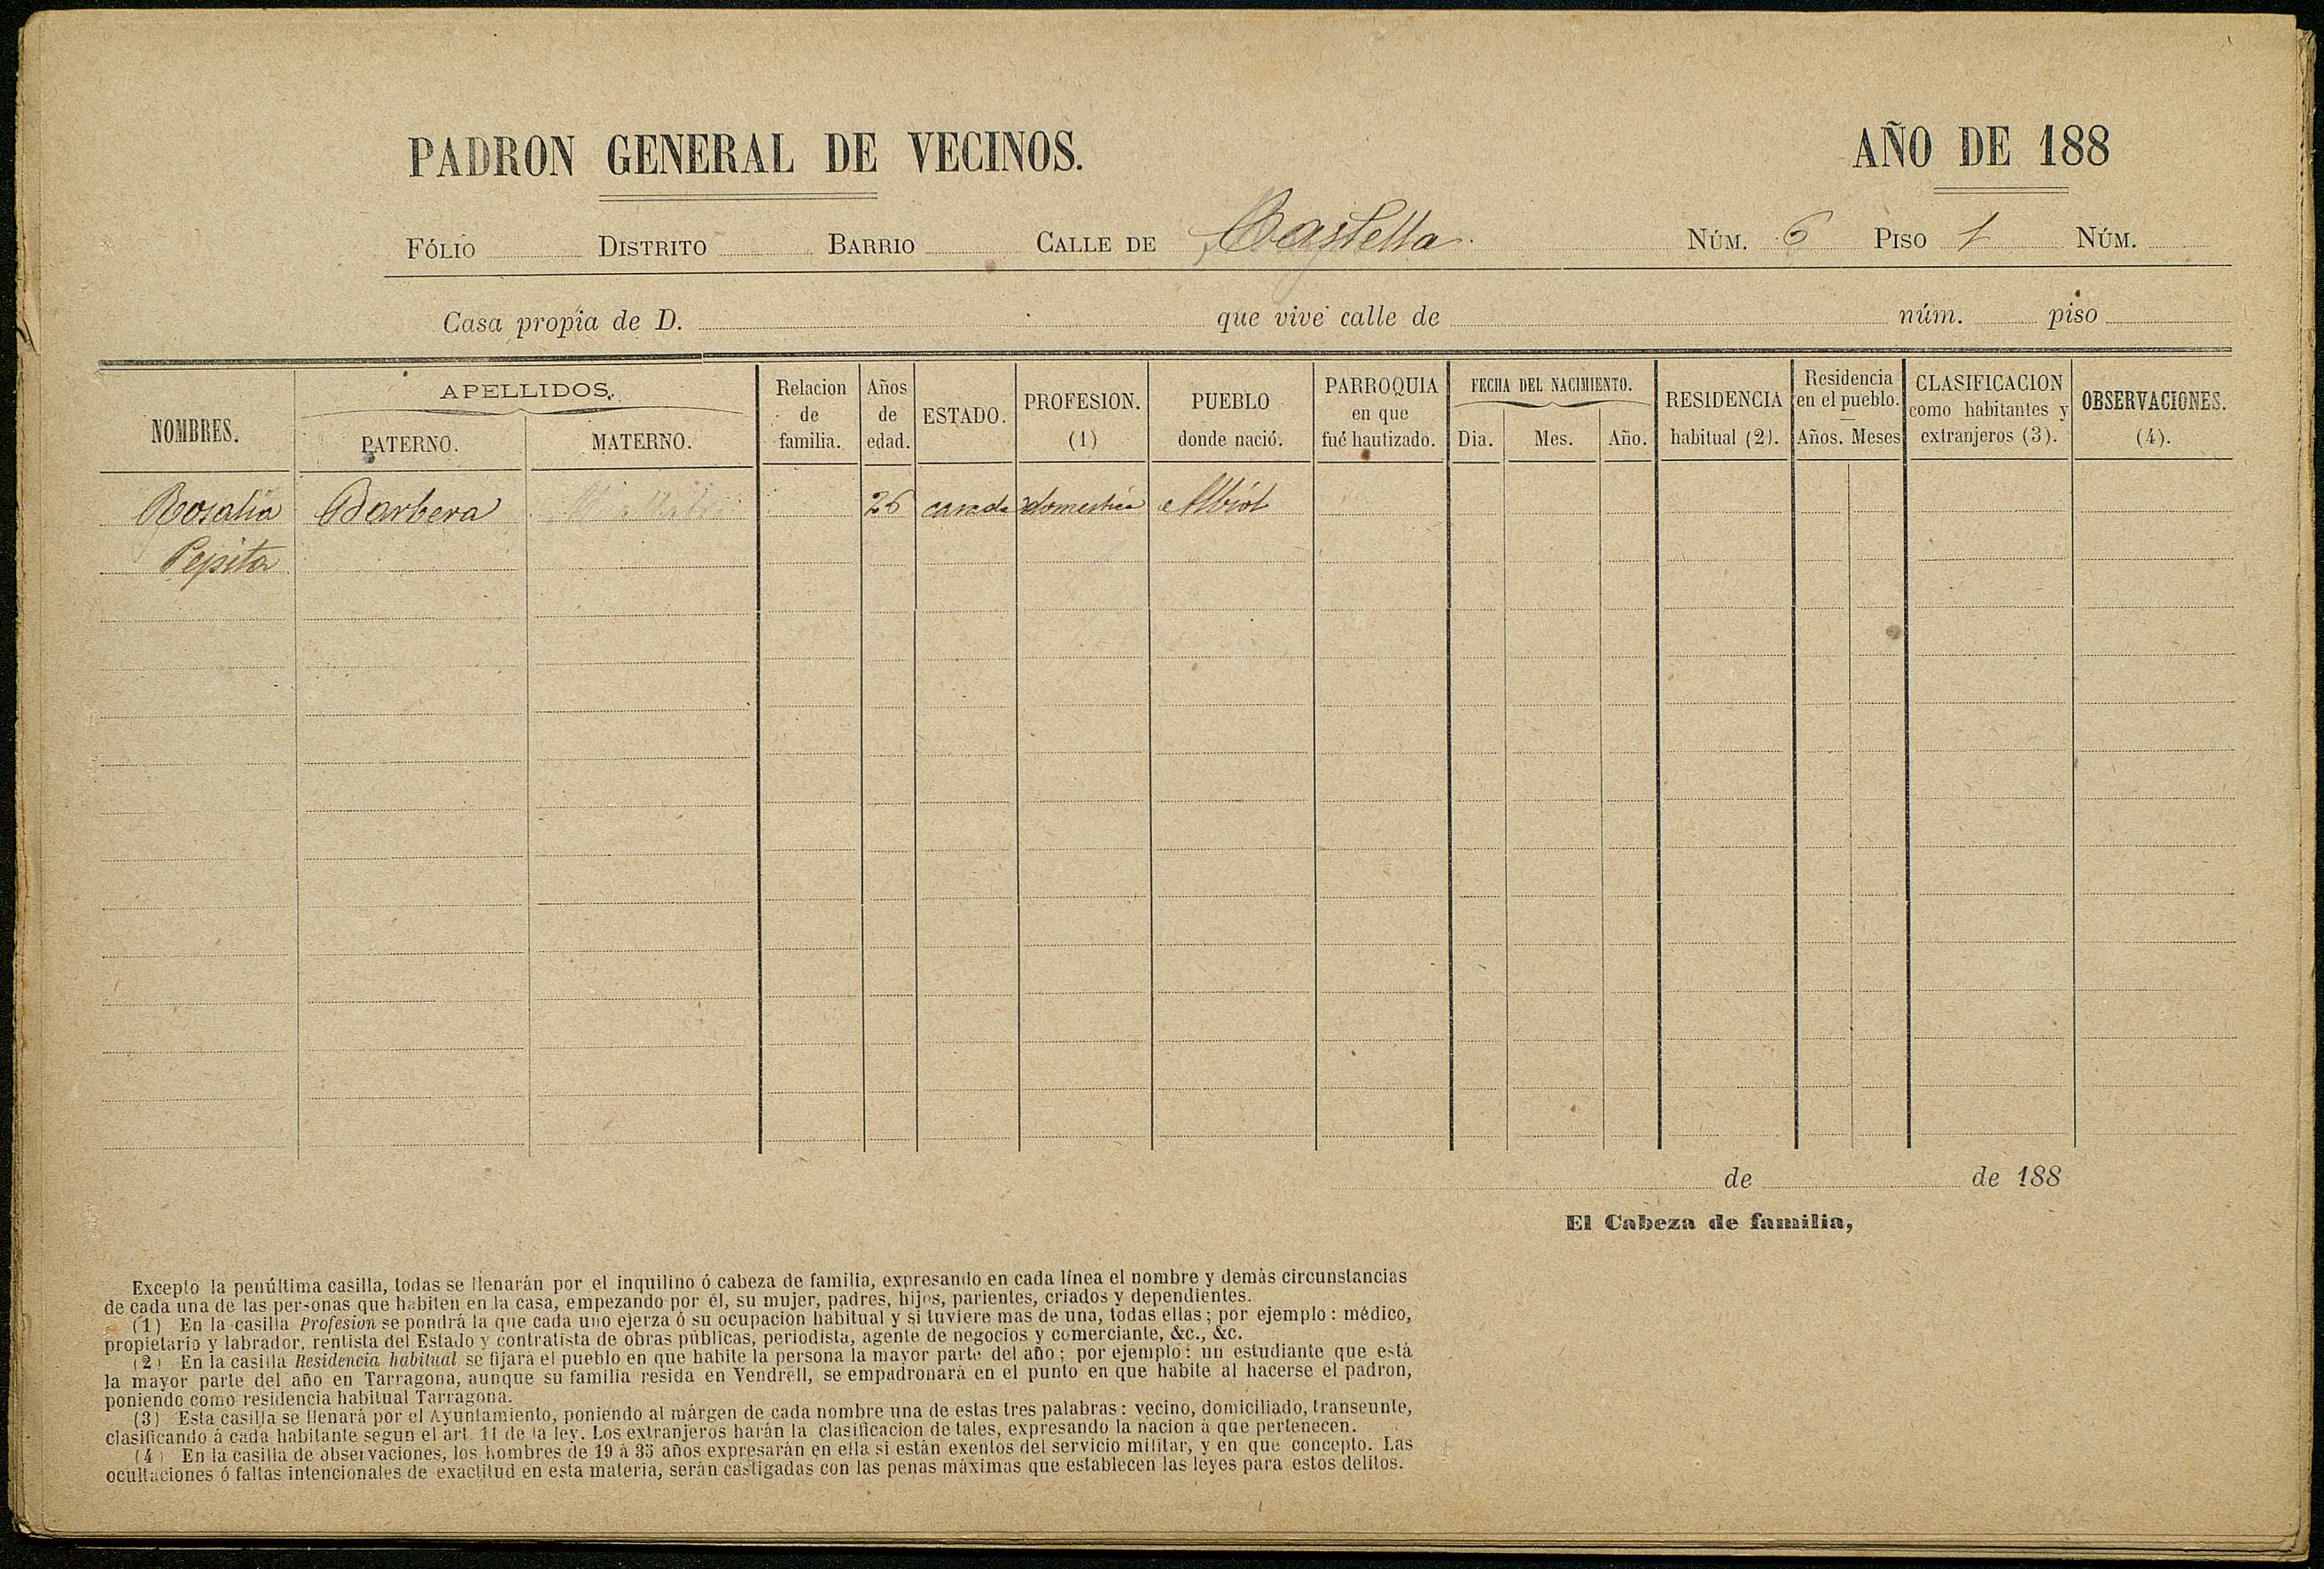 PADRON GENERAL DE VECINOS.
AÑO DE 188
FÓLIO DISTRITO BARRIO CALLE DE Castella NÚM. 6 PISO 1 NÚM.
Casa propia de D. que vive calle de núm. piso
NOMBRES.
APELLIDOS.
PATERNO.
MATERNO.
Relacion de familia.
Años de edad.
ESTADO.
PROFESION. (1)
PUEBLO donde nació.
PARROQUIA en que fué bautizado.
FECHA DEL NACIMIENTO.
Dia.
Mes.
Año.
RESIDENCIA habitual (2).
Residencia en el pueblo.
Años. Meses
CLASIFICACION como habitantes y extranjeros (3).
OBSERVACIONES. (4).
Rosalia Barbera 26 casada domestica Albiol
Pepita
de de 188
El Cabeza de familia,
Excepto la penúltima casilla, todas se llenarán por el inquilino ó cabeza de familia, expresando en cada línea el nombre y demás circunstancias
de cada una de las personas que habiten en la casa, empezando por él, su mujer, padres, hijos, parientes, criados y dependientes.
(1) En la casilla Profesion se pondrá la que cada uno ejerza ó su ocupacion habitual y si tuviere mas de una, todas ellas; por ejemplo: médico,
propietario y labrador, rentista del Estado y contratista de obras públicas, periodista, agente de negocios y comerciante, &c., &c.
(2) En la casilla Residencia habitual se fijará el pueblo en que habite la persona la mayor parte del año; por ejemplo: un estudiante que está
la mayor parte del año en Tarragona, aunque su familia resida en Vendrell, se empadronará en el punto en que habite al hacerse el padron,
poniendo como residencia habitual Tarragona.
(3) Esta casilla se llenará por el Ayuntamiento, poniendo al márgen de cada nombre una de estas tres palabras: vecino, domiciliado, transeunte,
clasificando á cada habitante segun el art. 11 de la ley. Los extranjeros harán la clasificacion de tales, expresando la nacion á que pertenecen.
(4) En la casilla de observaciones, los hombres de 19 á 35 años expresarán en ella si están exentos del servicio militar, y en que concepto. Las
ocultaciones ó faltas intencionales de exactitud en esta materia, serán castigadas con las penas máximas que establecen las leyes para estos delitos.